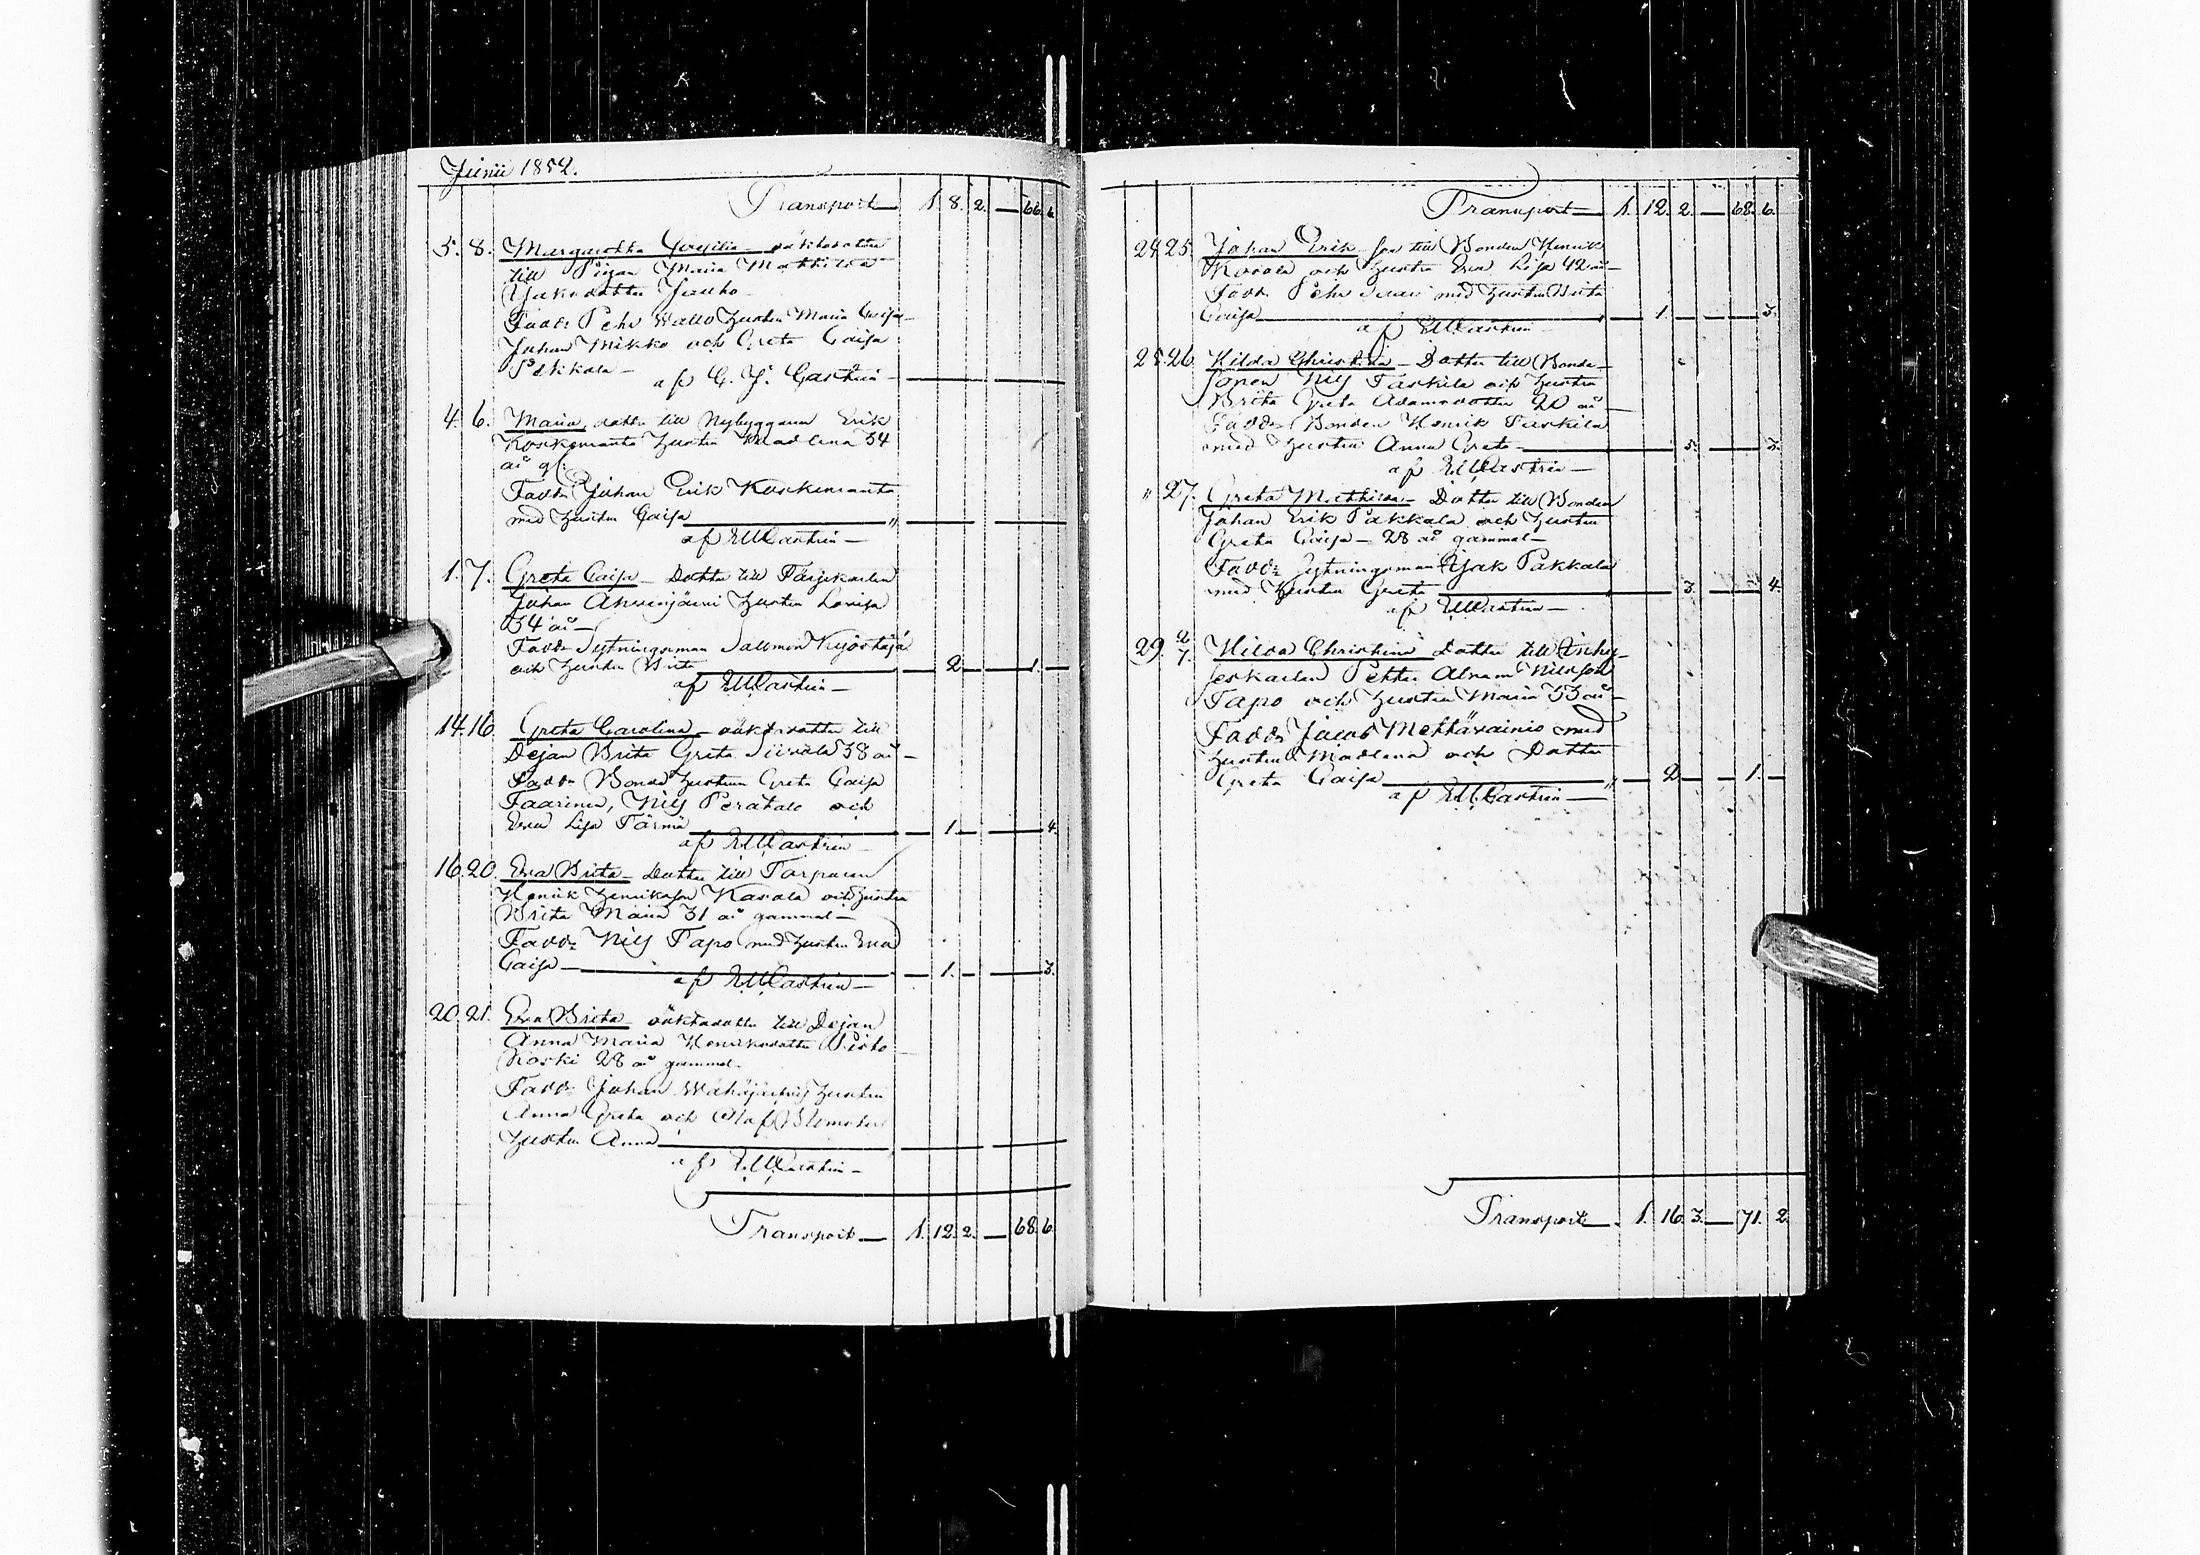 Junii 1852.
Transport 1. 8. 2. — 66. 6.
5. 8. Margaretha Cecilia oäktadotter
till Pigan Maria Mathilda
Jakosdotter Jauho
Fadd: Pehr Wallo hustru Maria Caisa
Johan Mikko och Greta Caisa
Pakkala —
af C. J. Castrén —
4. 6. Maria, dotter till Nybyggaren Erik
Koskemanta hustru Madlena 34
år gl:
Fadd: Johan Erik Koskemanta
med hustru Caisa — "
af EMCastrén —
1. 7. Greta Caisa — Dotter till Färjekarlen
Johan Ahvenjärvi hustru Lovisa
34 år —
Fadd: Sytningsman Salomon
och hustru Brita — 2 — 1. —
af EMCastrén —
14. 16. Greta Carolina — oäkta dotter till
Dejan Brita Greta 38 år —
Fadd: Bonde hustrun Greta Caisa
Faarinen, Nils Peratalo och
Eva Lisa Pärmä — 1. — 4.
af EMCastrén —
16. 20. Eva Brita — Dotter till Torparen
Henrik Henriksson Kasala och hustru
Brita Maria 31 år gammal —
Fadd: Nils Tapo med hustru Eva
Caisa — 1. — 3.
af EMCastrén —
20. 21. Eva Brita oäktadotter till Dejan
Anna Maria Henriksdotter
Koski 28 år gammal.
Fadd: Johan hustru
Anna Greta och Olof
hustru Anna —
af EMCastrén —
Transport — 1. 12. 2. — 68. 6.
Transport — 1. 12. 2. — 68. 6.
24. 25. Johan Erik son till Bonden Henrik
och hustru Eva Lisa 42 år —
Fadd: Pehr med hustru Brita
Caisa — 1. — 3.
af EMCastrén —
25. 26. Hilda Christina — Dotter till Bonde-
sonen Nils Paskila och hustru
Brita Greta Adamsdotter 20 år
Fadd: Bonden Henrik Paskila
med hustru Anna Greta — 5. — 3.
af EMCastrén —
" 27. Greta Mathilda — Dotter till Bonden
Johan Erik Pakkala och hustru
Greta Caisa — 28 år gammal —
Fadd: Sytningsman Isak Pakkala
med hustru Greta — 3. — 4.
af EMCastrén —
29. 2/7. Hilda Christina Dotter till
Petter Abram Nilsson
Tapo och hustru Maria 33 år —
Fadd: Jacob Mettävainio med
hustru Madlena och Dotter
Greta Caisa — " — 2 — 1. —
af EMCastrén — "
Transport — 1. 16. 3. — 71. 2.